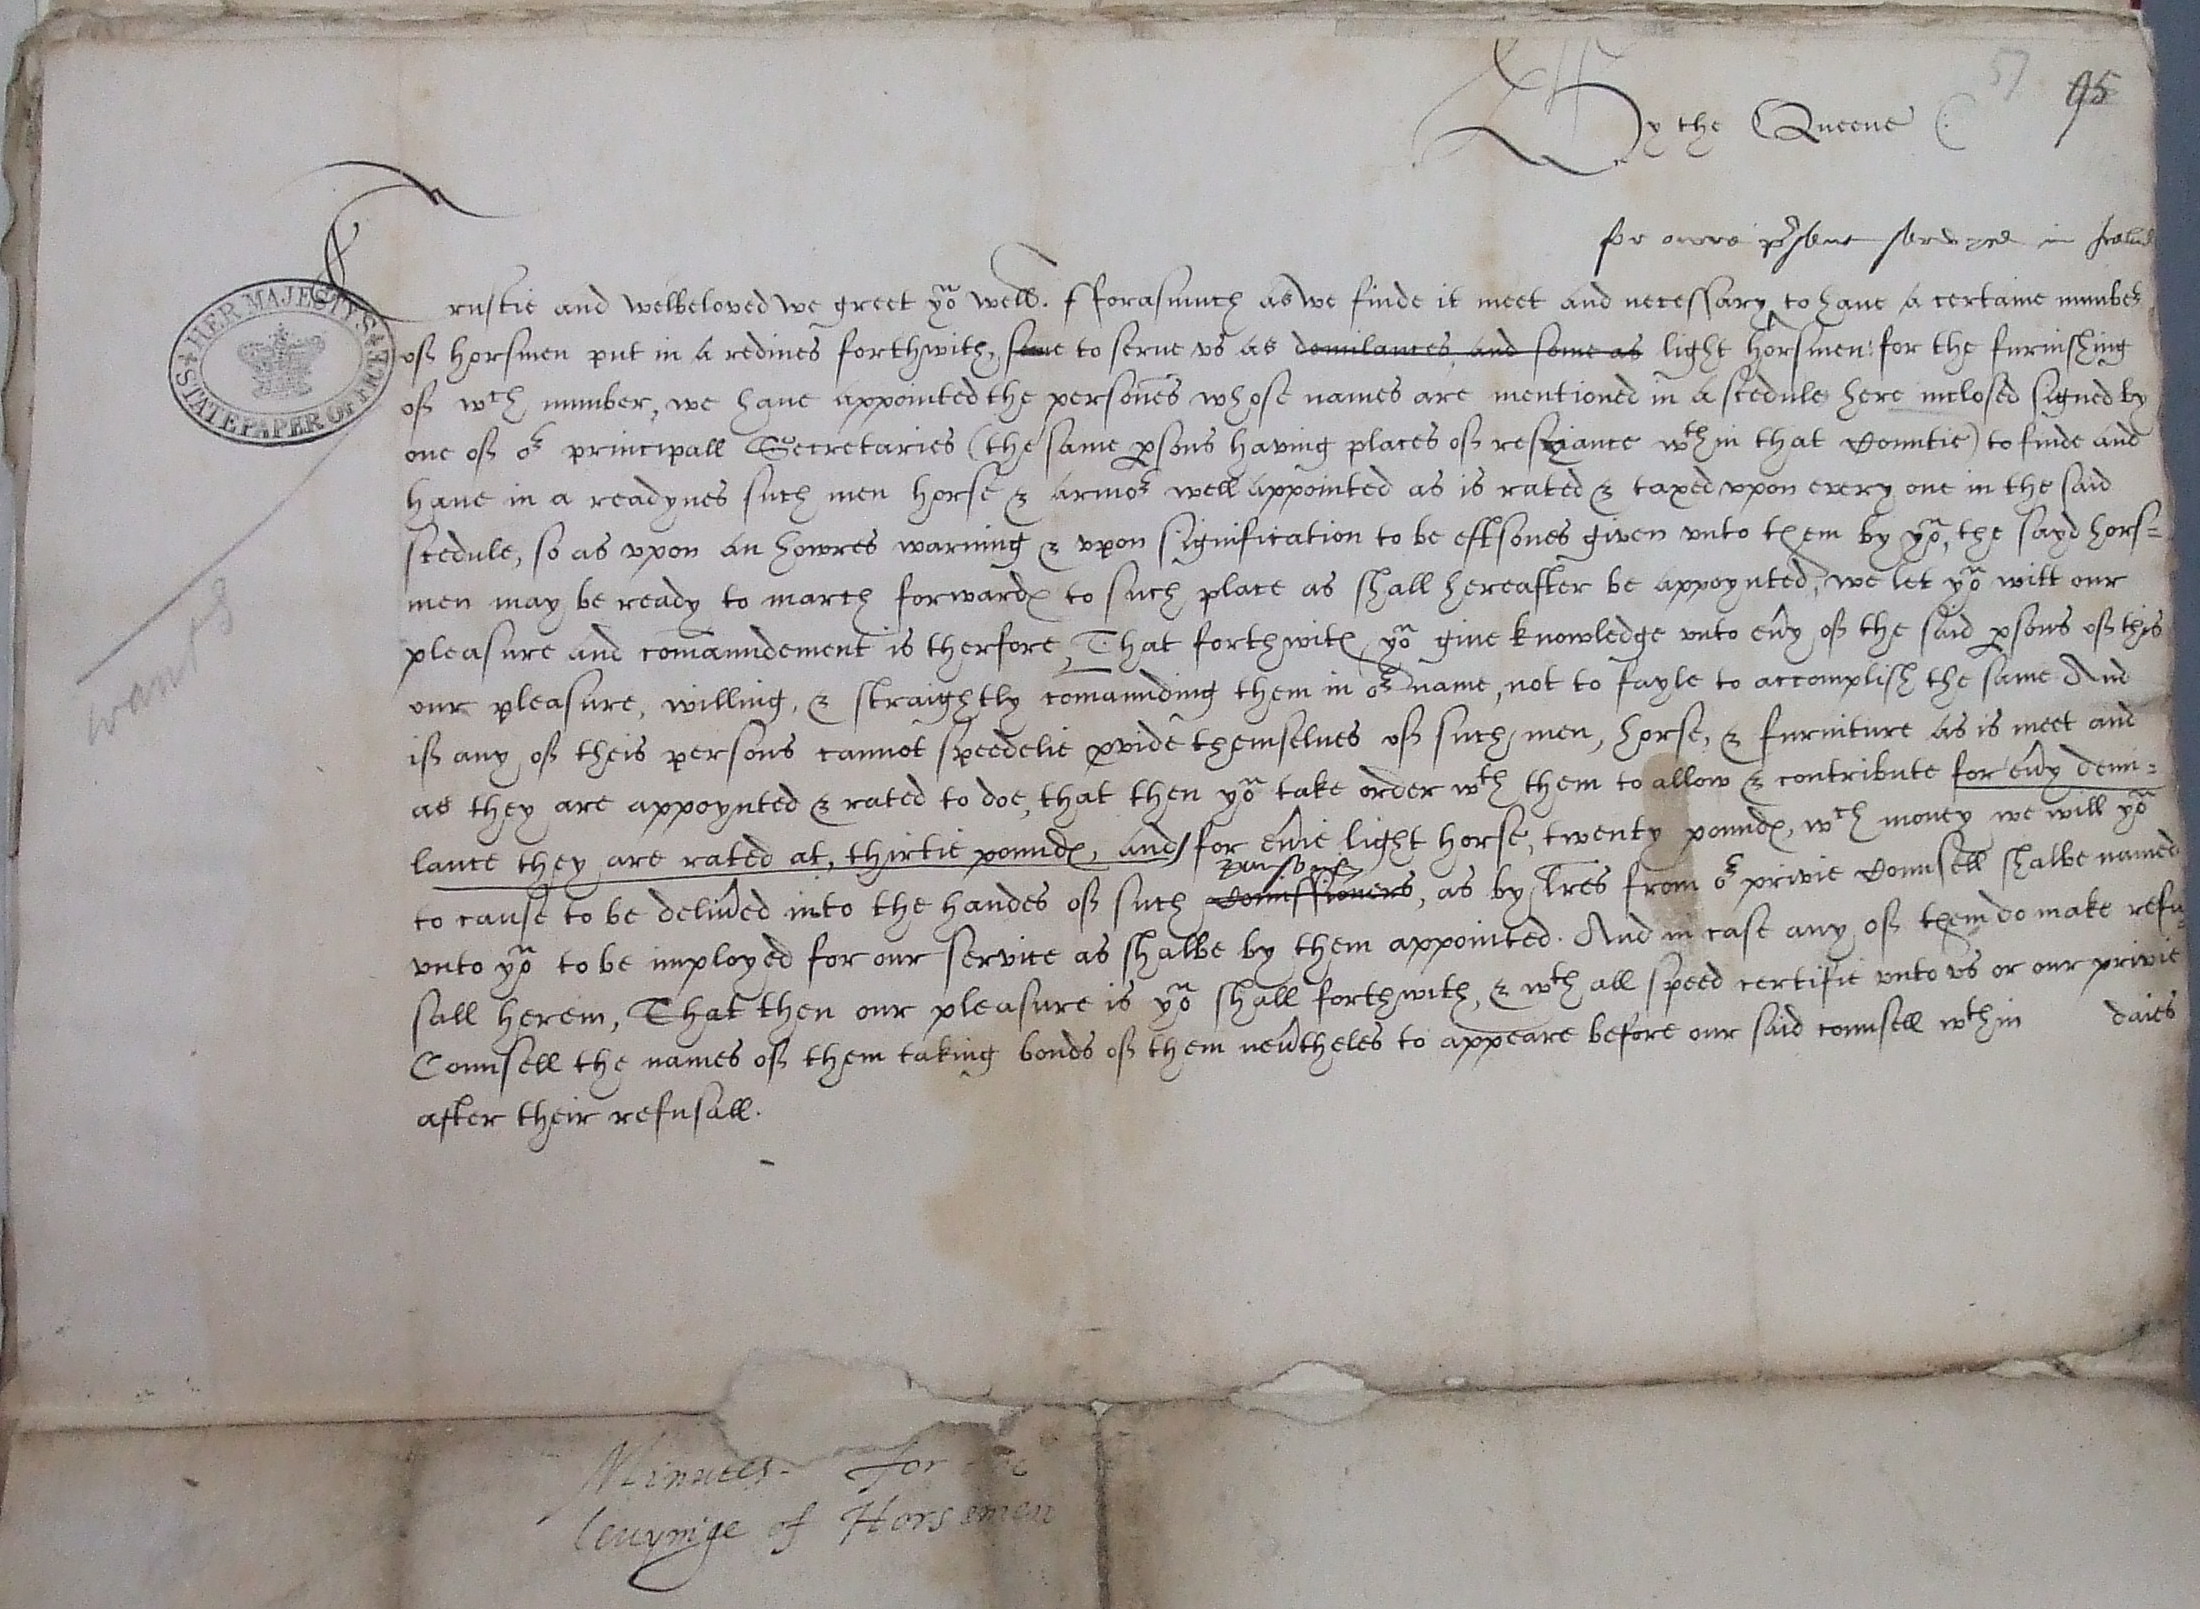 57 95
By the Queene
for owre p̃sent servyce in Ireland
Trustie and welbeloved we greet yoͧ well. fforasmuch as we finde it meet and necessary to have a certaine number
of horsmen put in a redines forthwith, some to serue vs as demilances and some as light horsmen: for the furnishing
of wch number, we haue appointed the persones whose names are mentioned in a scedule here inclosed signed by
one of oͬ principall Secretaries (the same ꝑsons having places of resiance wthin that Countie) to finde and
haue in a readynes such men horse & armoͬ well appointed as is rated & taxed vpon every one in the said
scedule, so as vpon an howres warning & vpon signification to be eftsones given vnto them by yoͧ, the sayd hors=
men may be ready to march forwardꝭ to such place as shall hereafter be appoynted, we let yoͧ witt our
pleasure and com̄aundement is therfore, That forthwith yoͧ giue knowledge vnto eũy of the said ꝑsons of this
our pleasure, willing, & straightly com̄aunding them in oͬ name, not to fayle to accomplish the same And
if any of theis persons cannot speedelie ꝓvide themselues of such men, horse, & furniture as is meet and
as they are appoynted & rated to doe, that then yoͧ take order wth them to allow & contribute for eũy demi=
lance they are rated at, thirtie poundꝭ, and for eũie light horse, twenty poundꝭ, wch money we will yoͧ
to cause to be deliũed into the handes of such Com̄issioners, as by l̃res from oͬ privie Counsell shalbe named
vnto yoͧ to be imployed for our service as shalbe by them appointed. And in case any of them do make refu=
sall herein, That then our pleasure is yoͧ shall forthwith, & wth all speed certifie vnto vs or our privie
Counsell the names of them taking bonds of them neũtheles to appeare before our said counsell wthin daies
after their refusall.
HER MAJESTY'S STATE PAPER OFFICE
wants
Minutes for the
levyinge of Horsemen